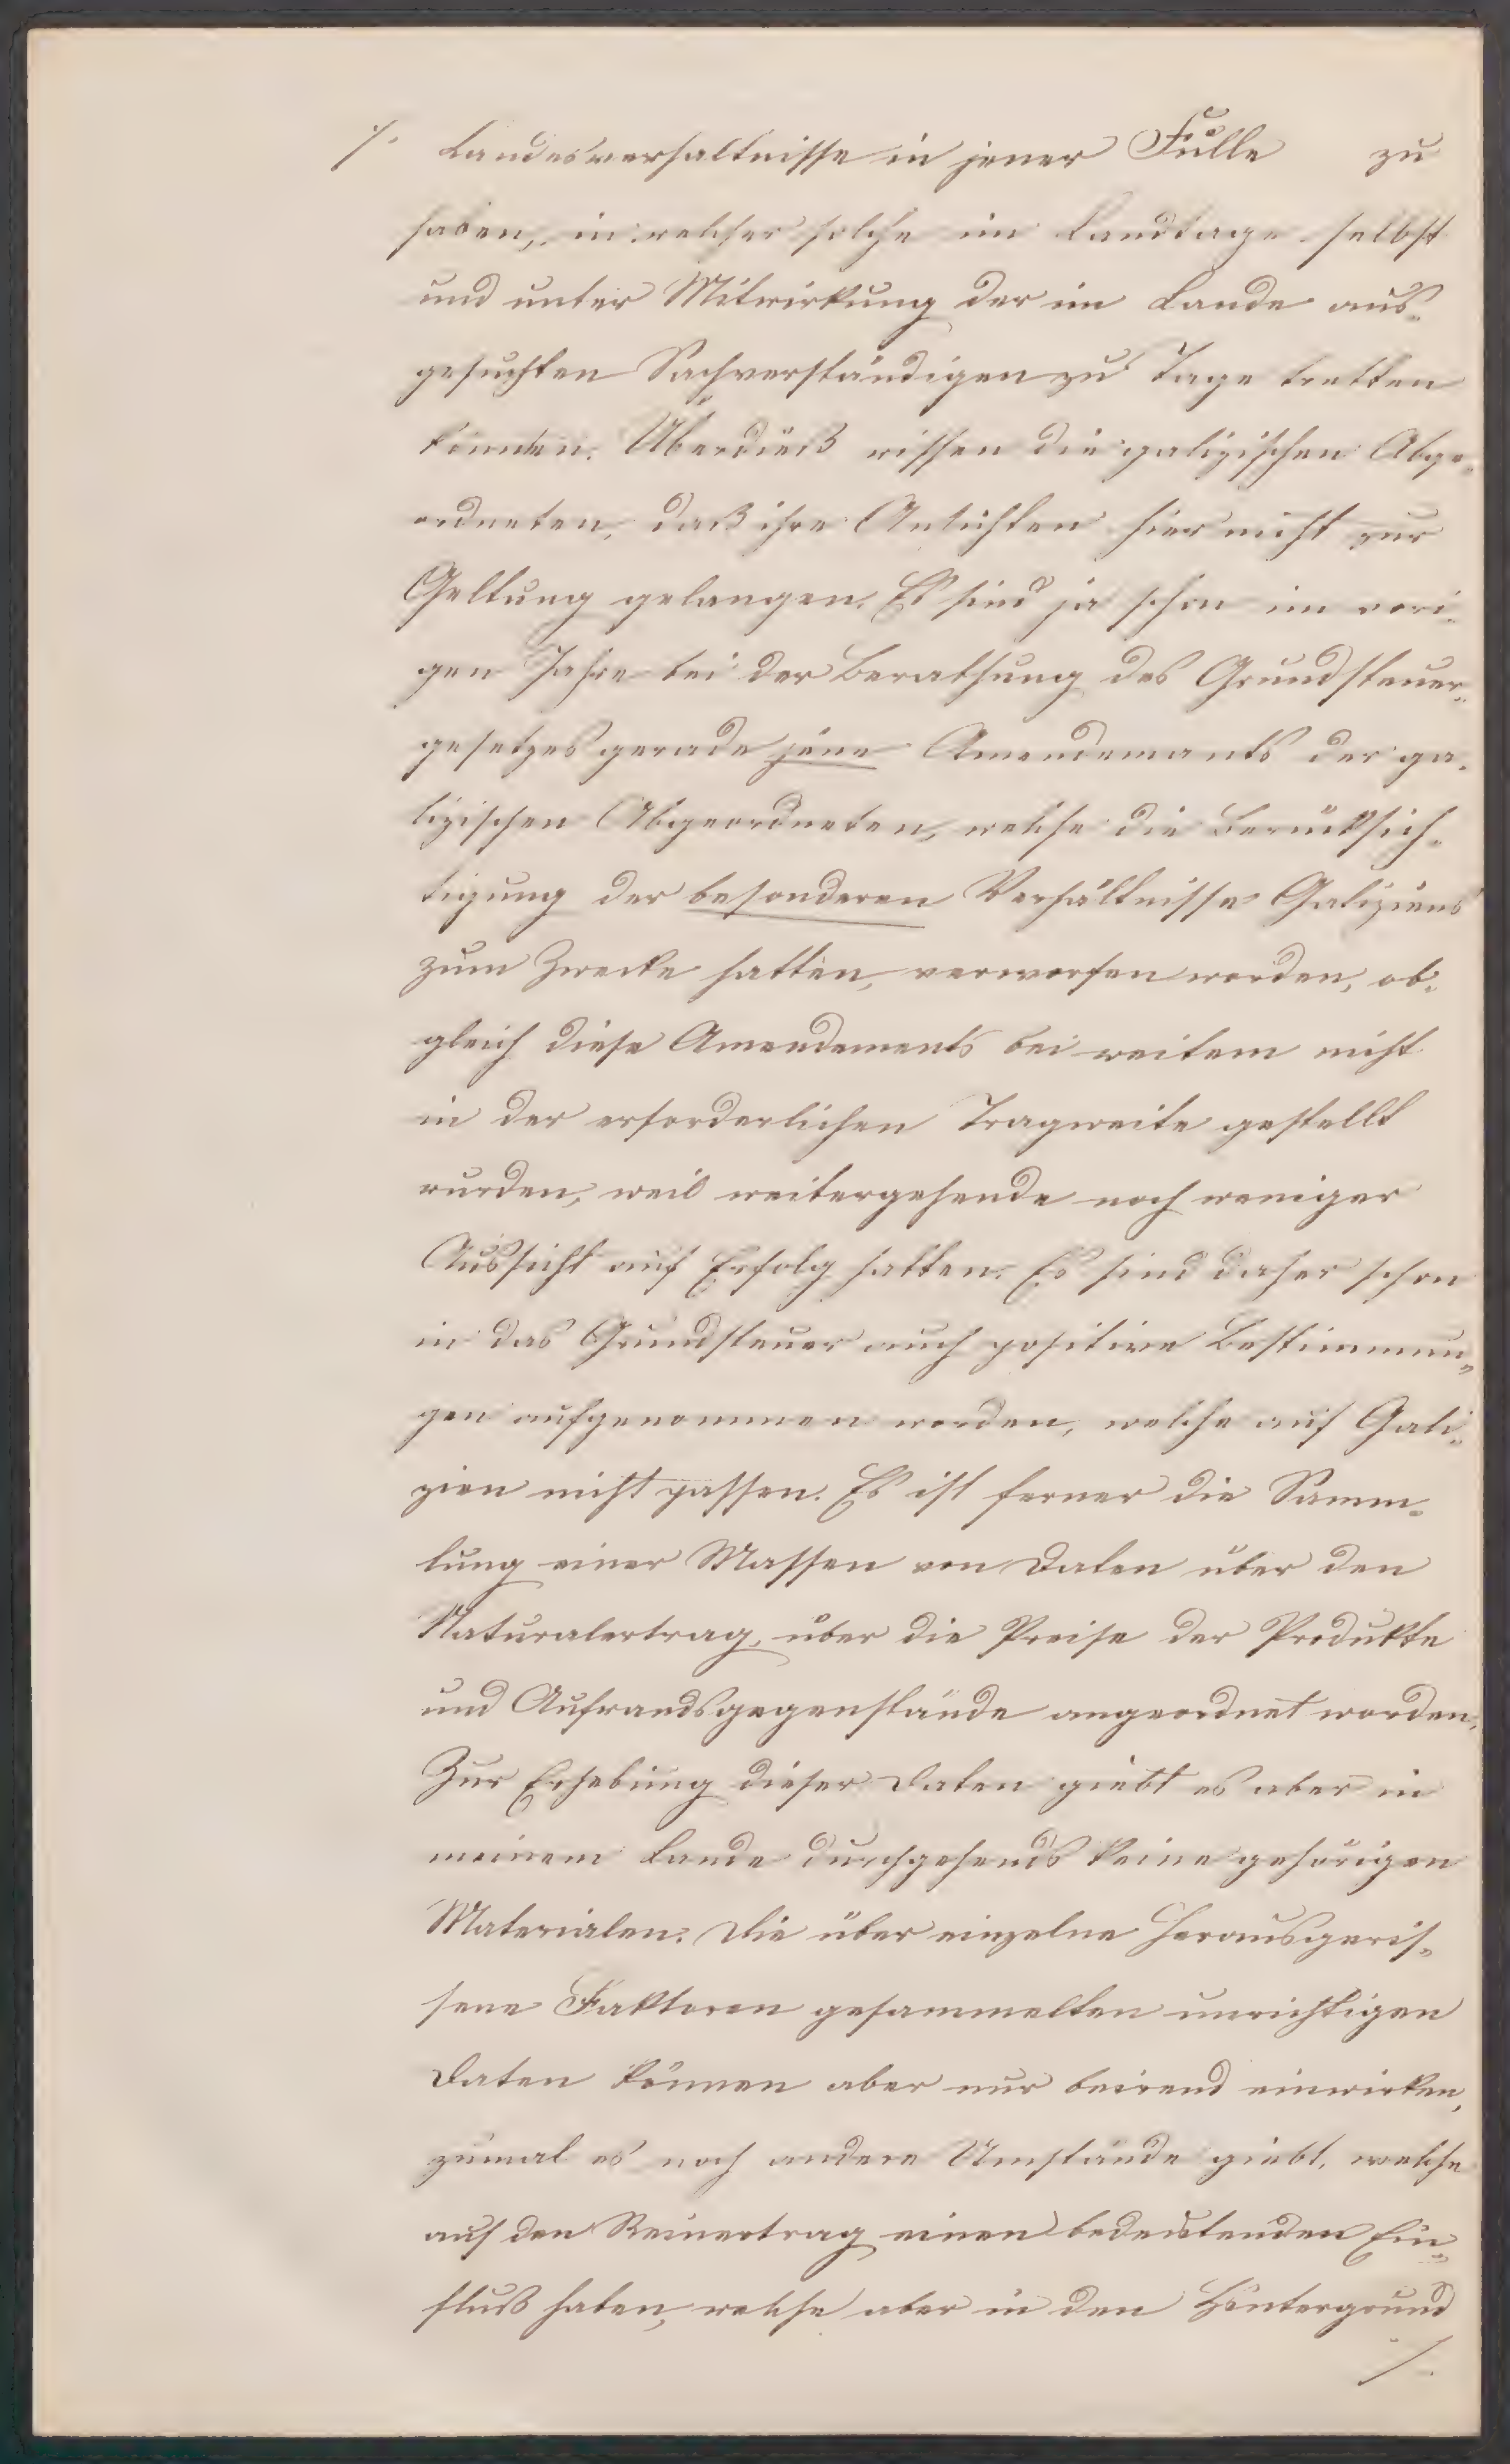 /. Landesverhaltnisse in jener Fülle zu
haben, in welcher solche im Landtage selbst
und unter Mitwirkung der im Lande aus-
gesuchten Sachverständigen zu Tage tretten
könnten. Überdieß wissen die galizischen Abge-
ordneten, daß ihre Ansichten hier nicht zur
Geltung gelangen. Es sind ja schon im vori-
gen Jahre bei der Berathung des Grundsteuer-
gesetzes gerade jene Amendemants der ga-
lizischen Abgeordneten, welche die Berücksich-
tigung der besonderen Verhältnisse Galiziens
zum Zwecke hatten, verworfen worden, ob-
gleich diese Amendements bei weitem nicht
in der erforderlichen Tragweite gestellt
wurden, weil weitergehende noch weniger
Aussicht auf Erfolg hatten. Es sind daher schon
in das Grundsteuer auch positive Bestimmun-
gen aufgenommen worden, welche auf Gali-
zien nicht passen. Es ist ferner die Samm-
lung einer Massen von Daten über den
Naturalertrag, über die Preise der Produkte
und Aufwandsgegenstände angeordnet worden.
Zur Erhebung dieser Daten giebt es aber in
meinem Lande durchgehends keine gehörigen
Materialen. Die über einzelne herausgeris-
sene Faktoren gesammelten unrichtigen
Daten können aber nur beirend einwirken,
zumal es noch andere Umstände giebt, welche
auf den Reinertrag einen bedeutenden Ein-
fluß haben, welche aber in den Hintergrund
/.